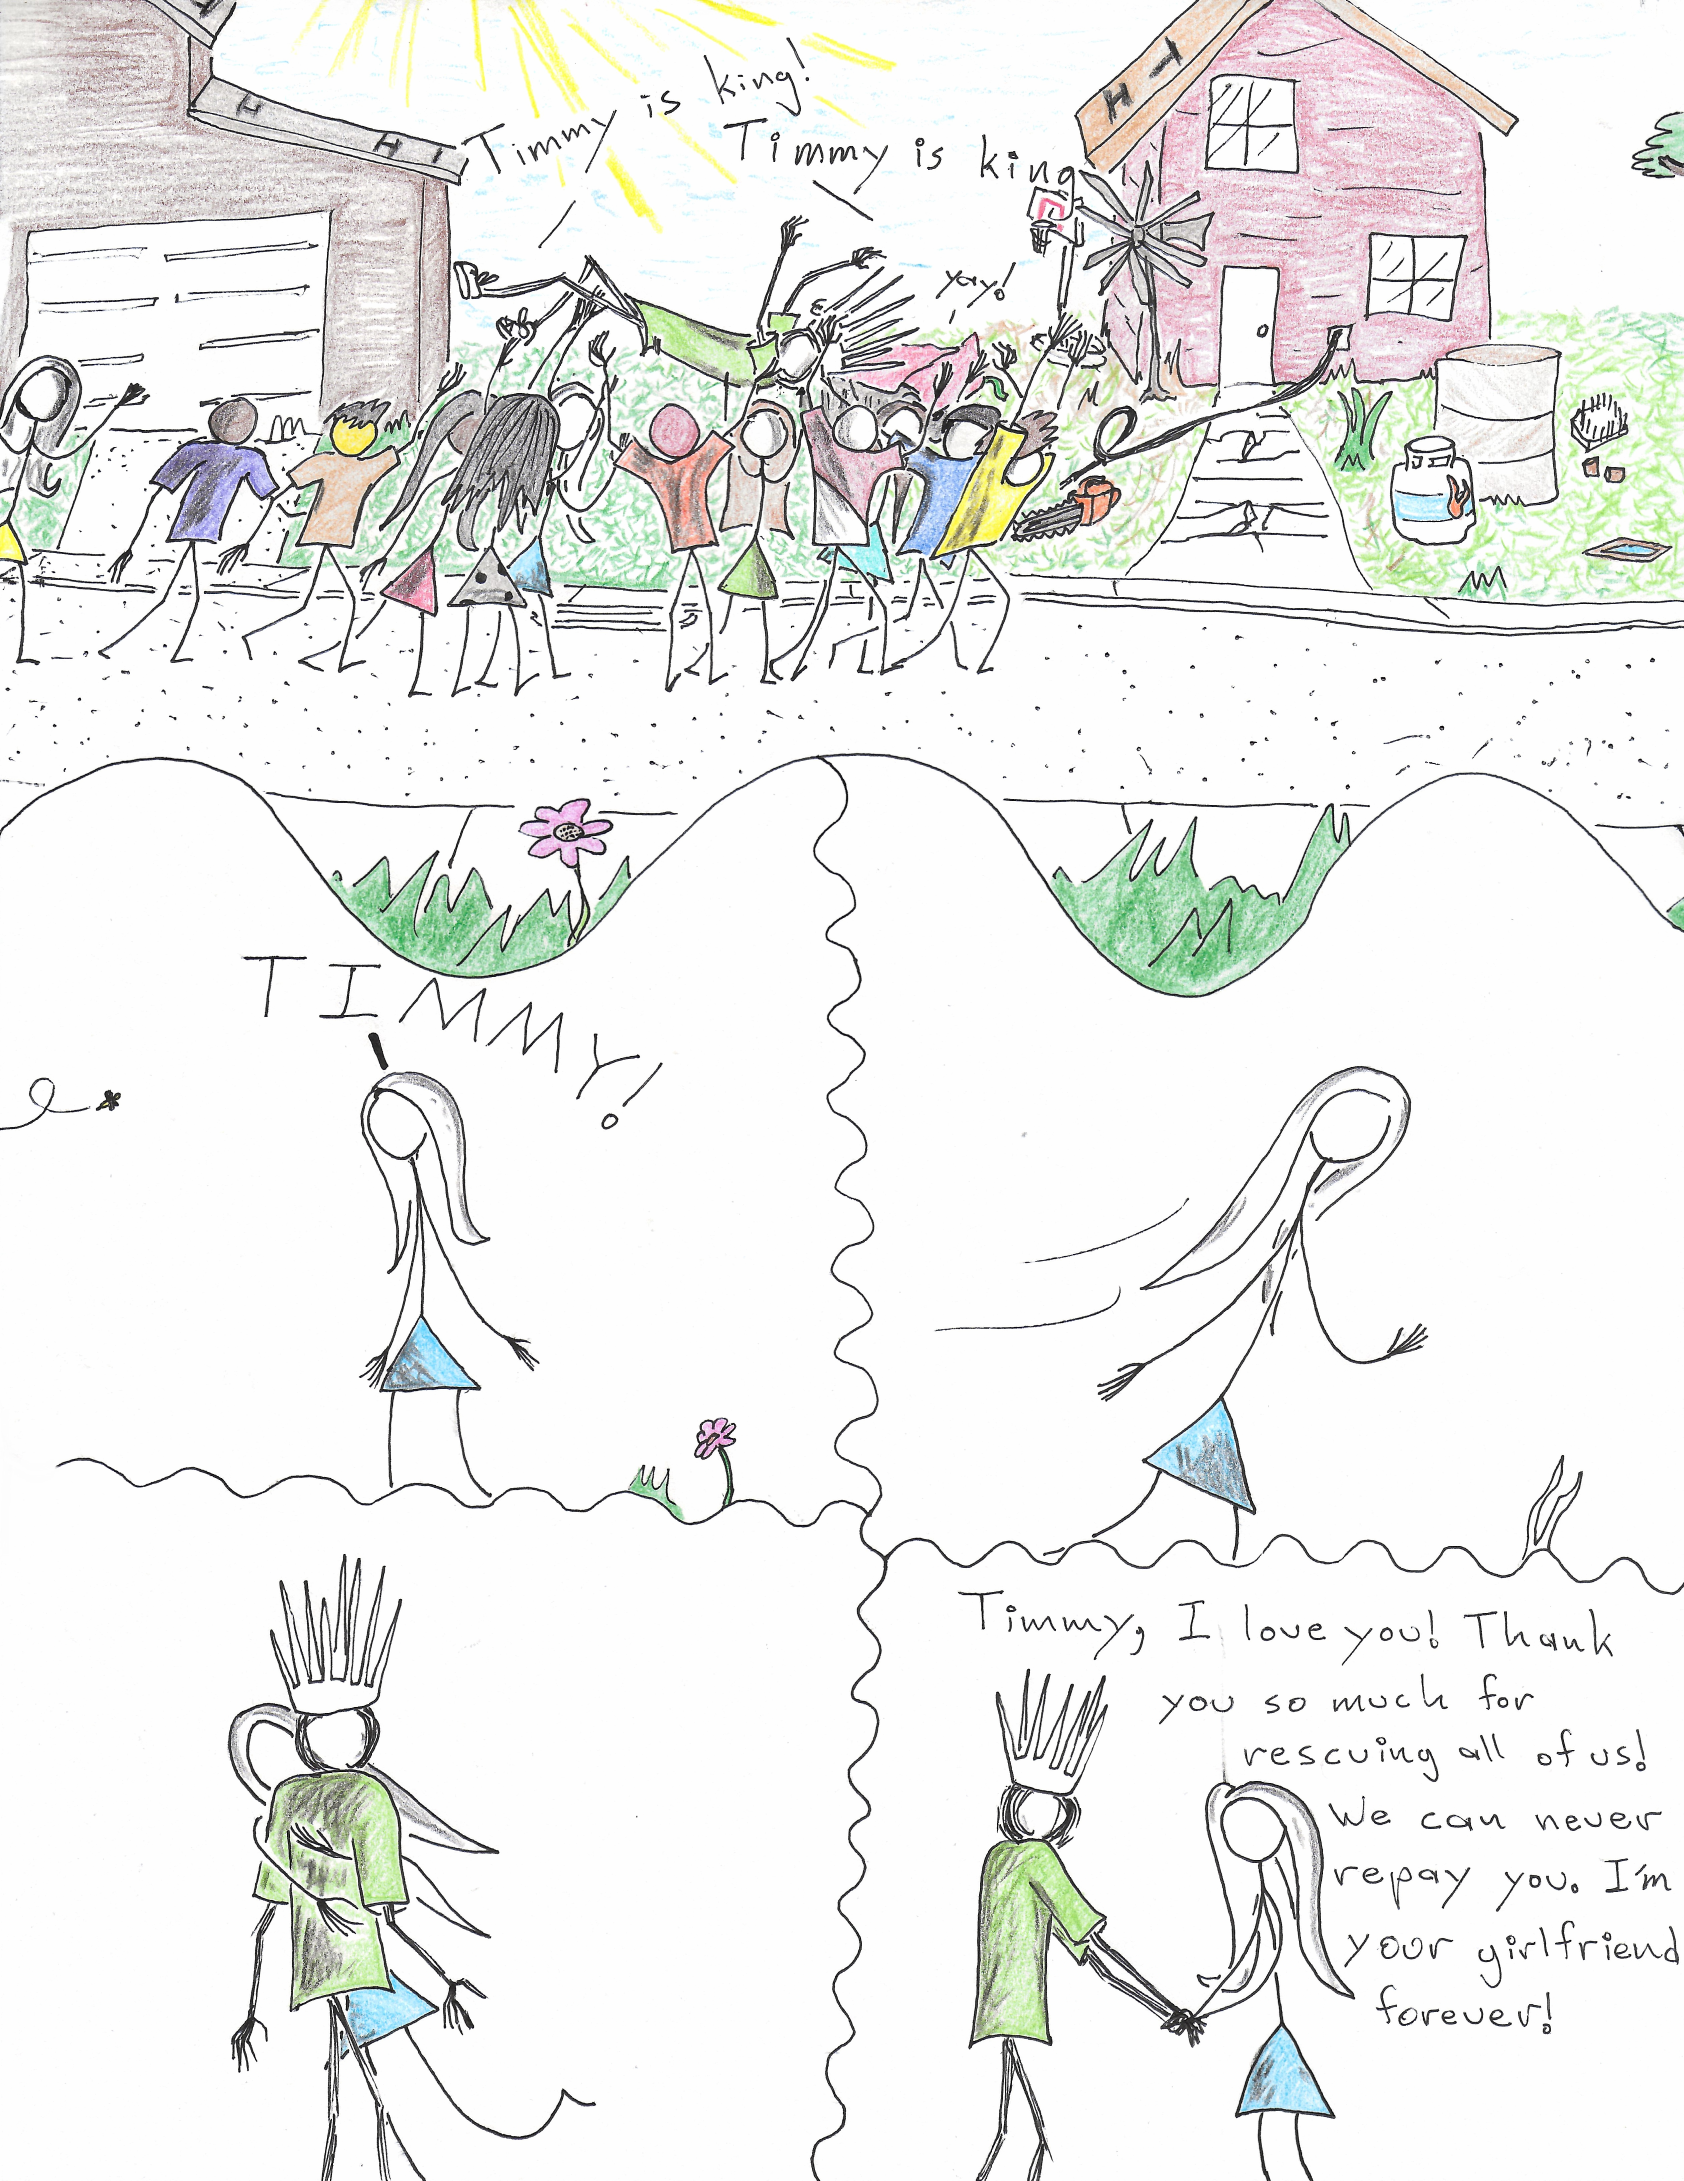 Timmy is king!
Timmy is king
yay!
TIMMY!
Timmy, I love you! Thank
you so much for
rescuing all of us!
We can never
repay you. I'm
your girlfriend
forever!